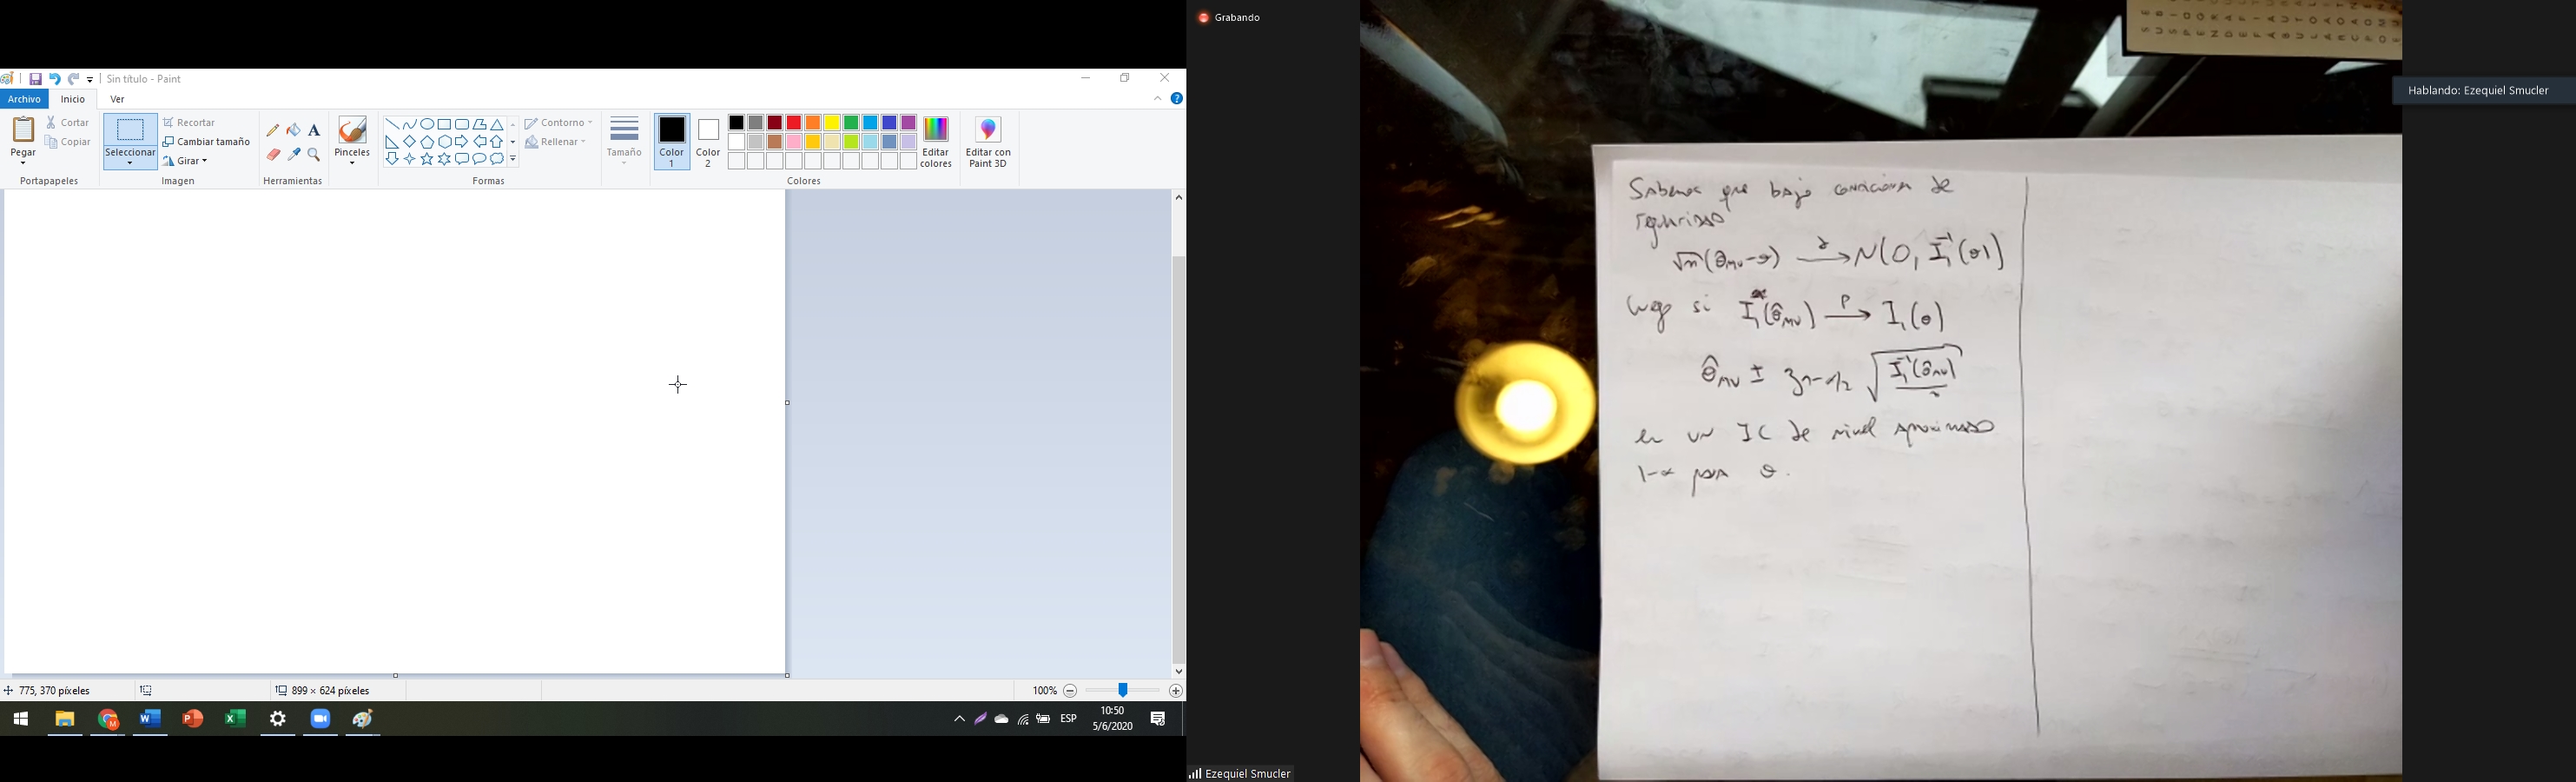 Sin título - Paint
Archivo Inicio Ver
Pegar
Cortar
Copiar
Portapapeles
Seleccionar
Recortar
Cambiar tamaño
Girar
Imagen
A
Herramientas
Pinceles
Contorno
Rellenar
Formas
Tamaño
Color 1
Color 2
Editar colores
Editar con Paint 3D
Colores
775, 370 píxeles
899 × 624 píxeles
100%
ESP
10:50
5/6/2020
Grabando
Ezequiel Smucler
Hablando: Ezequiel Smucler
Sabemos que bajo condiciones de
regularidad
√n(θ̂MV-θ) →d N(0, I₁⁻¹(θ))
luego si I₁(θ̂MV) →P I₁(θ)
θ̂MV ± z1-α/2 √(I₁⁻¹(θ̂MV)/n)
es un IC de nivel aproximado
1-α para θ.